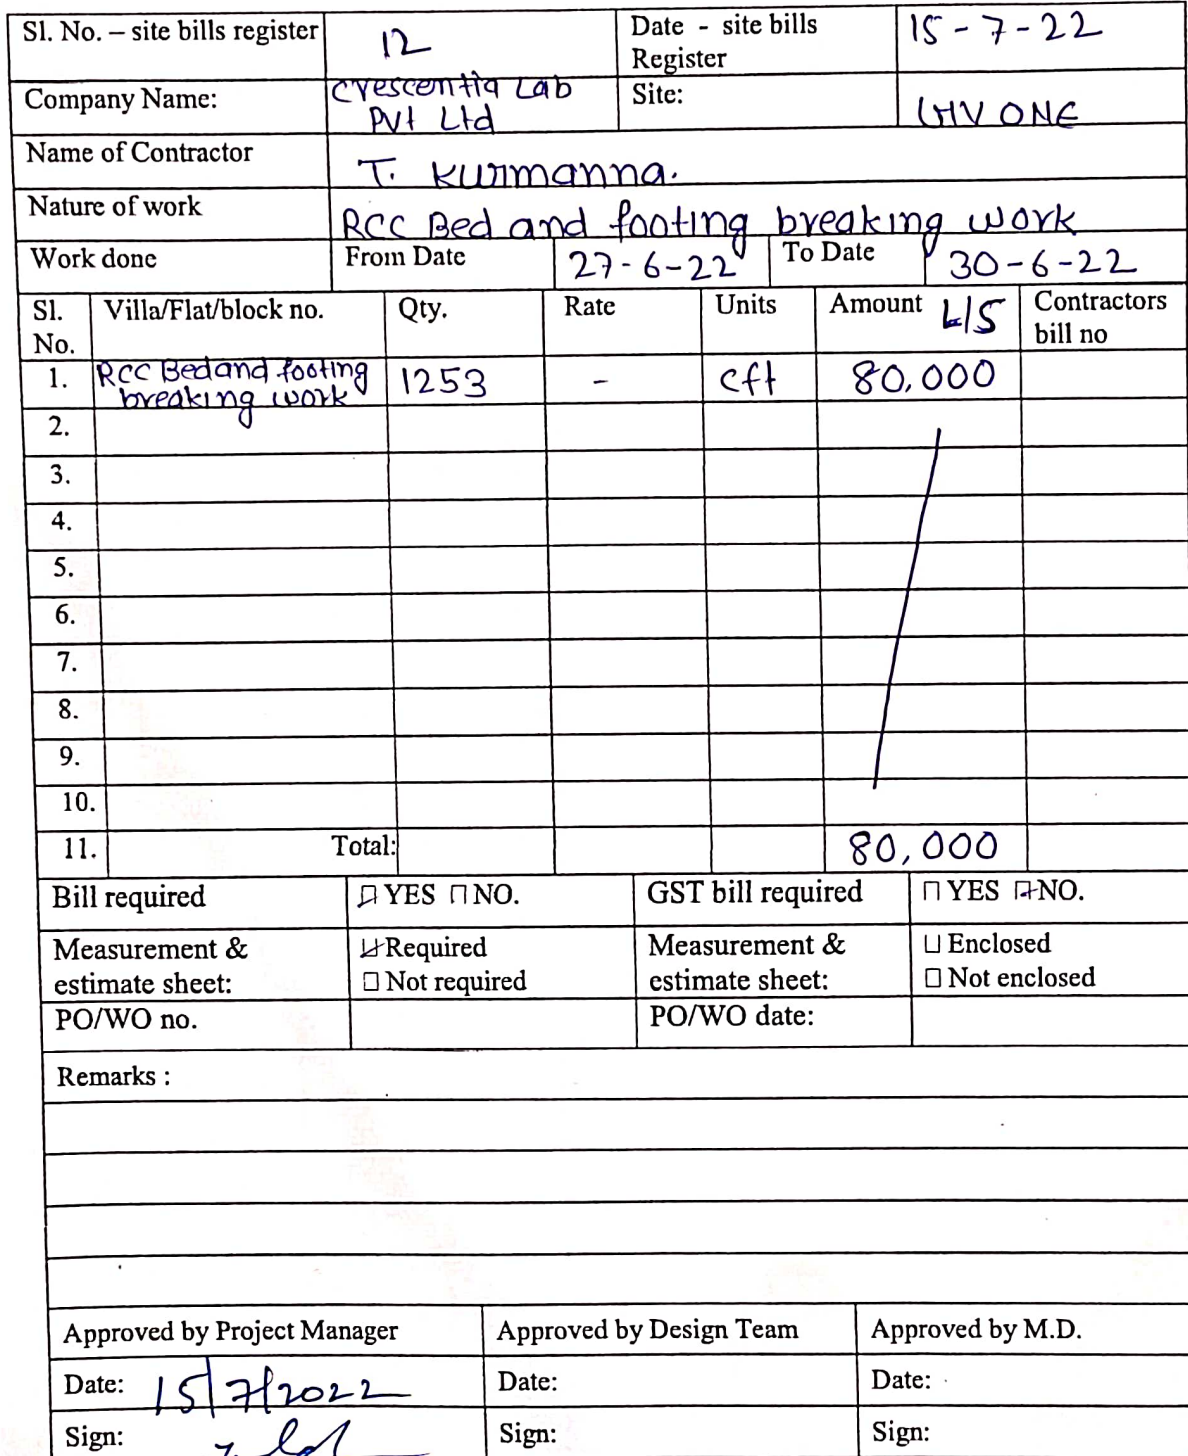 Sl. No. – site bills register 12 Date - site bills Register 15-7-22
Company Name: Crescentia Lab Pvt Ltd Site: GHV ONE
Name of Contractor T. Kurmanna.
Nature of work RCC Bed and footing breaking work
Work done From Date 27-6-22 To Date 30-6-22
Sl. No. Villa/Flat/block no. Qty. Rate Units Amount L/S Contractors bill no
1. RCC Bed and footing breaking work 1253 - cft 80,000
2.
3.
4.
5.
6.
7.
8.
9.
10.
11. Total: 80,000
Bill required YES NO. GST bill required YES NO.
Measurement & estimate sheet: Required Not required Measurement & estimate sheet: Enclosed Not enclosed
PO/WO no. PO/WO date:
Remarks :
Approved by Project Manager Approved by Design Team Approved by M.D.
Date: 15/7/2022 Date: Date:
Sign: Sign: Sign: